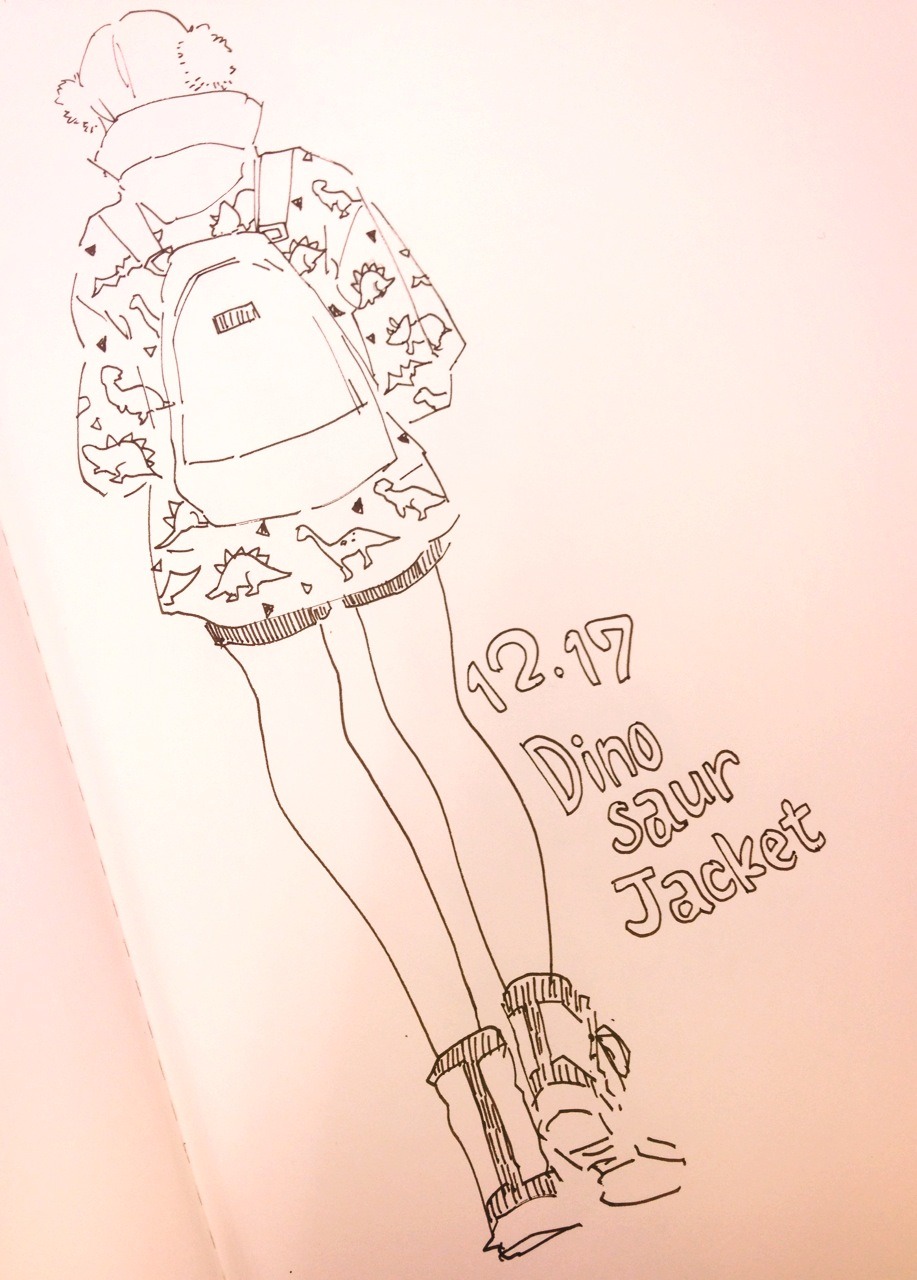 12.17
Dino
saur
Jacket